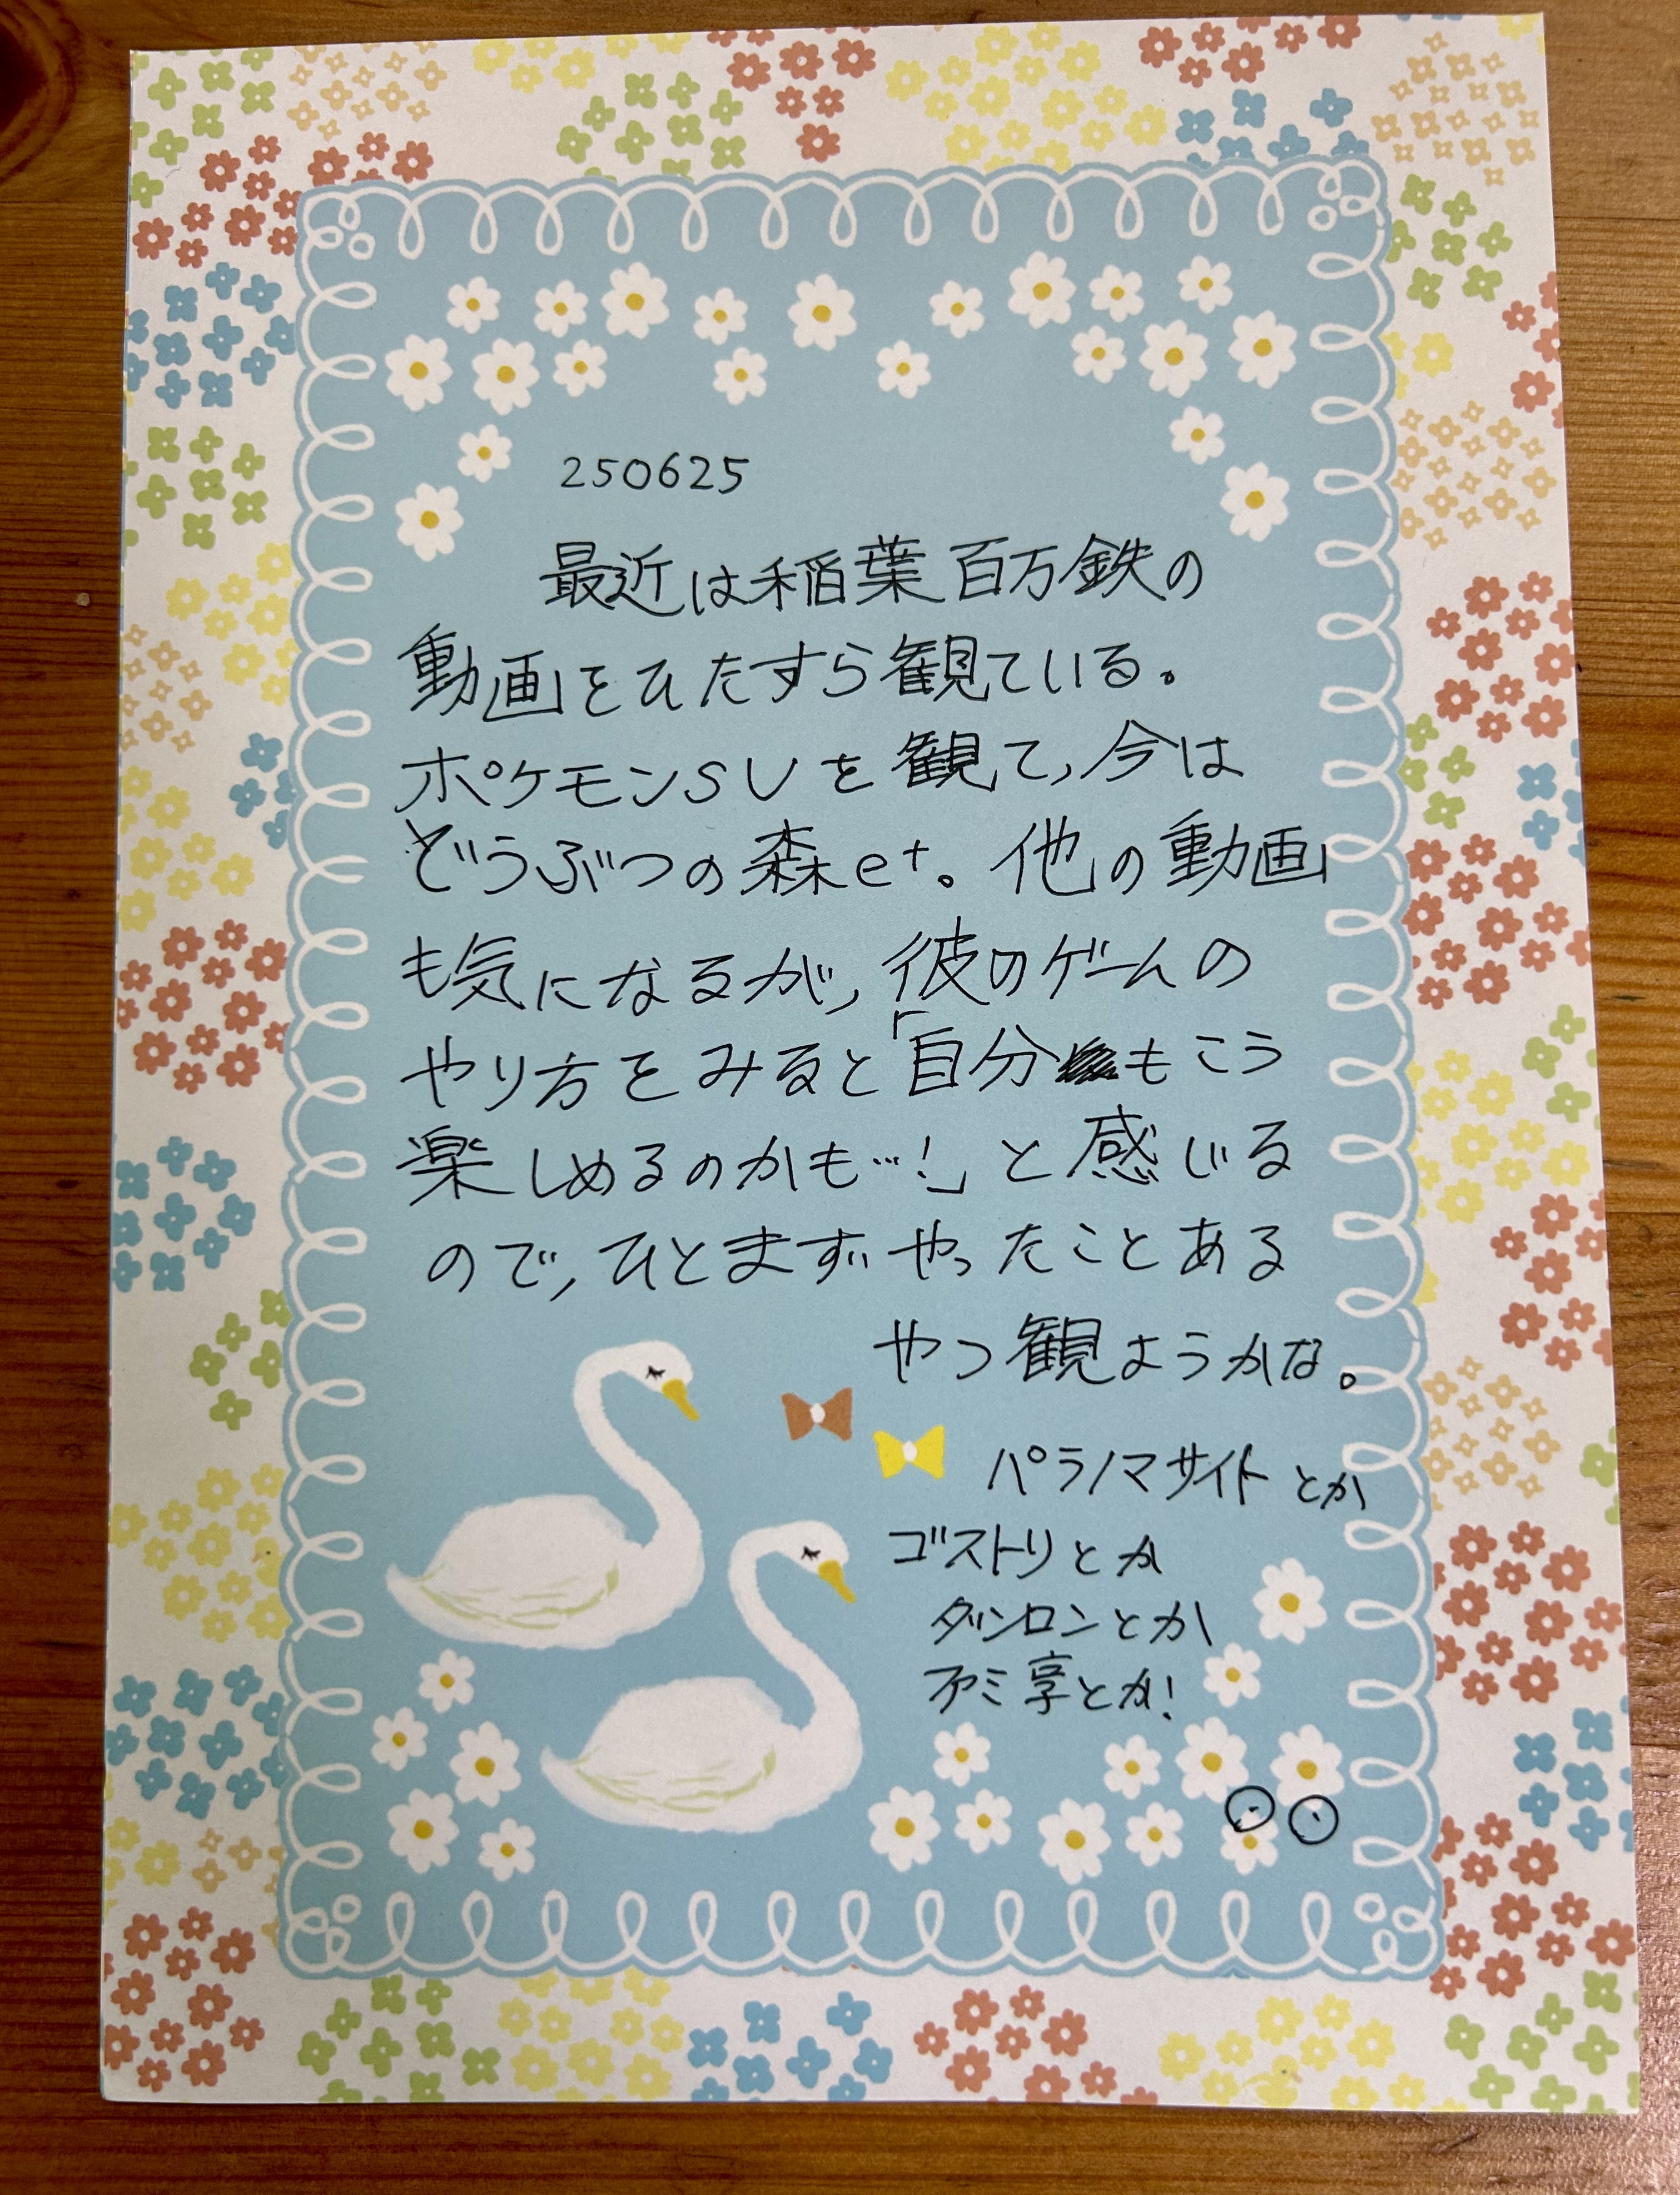 250625
最近は稲葉百万鉄の
動画をひたすら観ている。
ポケモンSVを観て、今は
どうぶつの森e+。他の動画
も気になるが、彼のゲームの
やり方をみると「自分もこう
楽しめるのかも…!」と感じる
ので、ひとまずやったことある
やつ観ようかな。
パラノマサイトとか
ゴストリとか
ダンロンとか
アミ享とか!